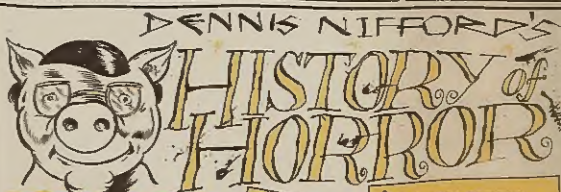 DENNIS NIFFORD'S
HISTORY of
HORROR